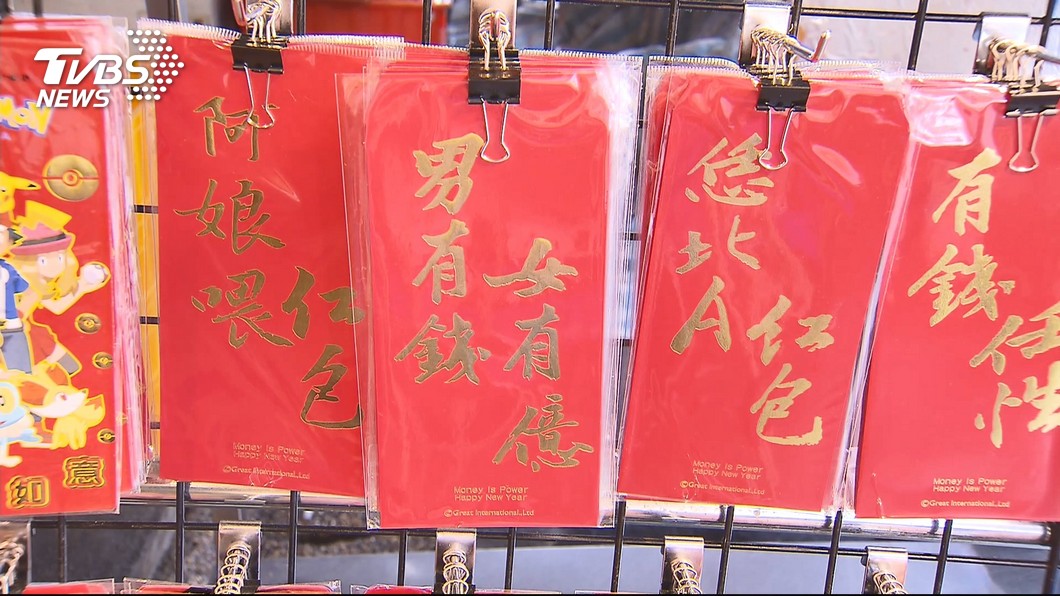 TVBS
NEWS
如意
阿娘喂
紅包
Money Is Power
Happy New Year
©Great International.,Ltd
男有錢
女有億
Money Is Power
Happy New Year
©Great International.,Ltd
恁北A
紅包
Money Is Power
Happy New Year
©Great International.,Ltd
有錢
任性
Money Is Power
Happy New Year
©Great International.,Ltd